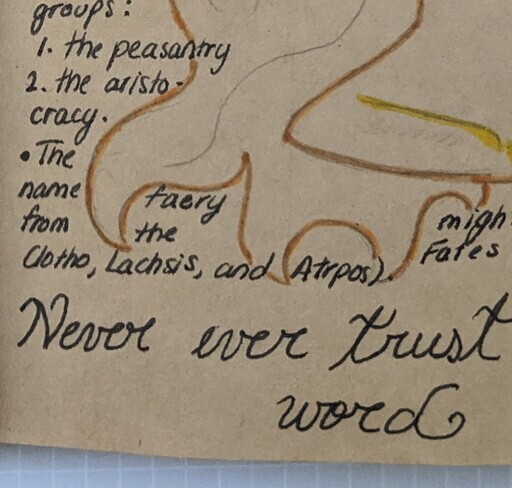 groups:
1. the peasantry
2. the aristo-
cracy.
• The
name faery migh
from the Fates
Clotho, Lachsis, and Atrpos).
Never ever trust
word